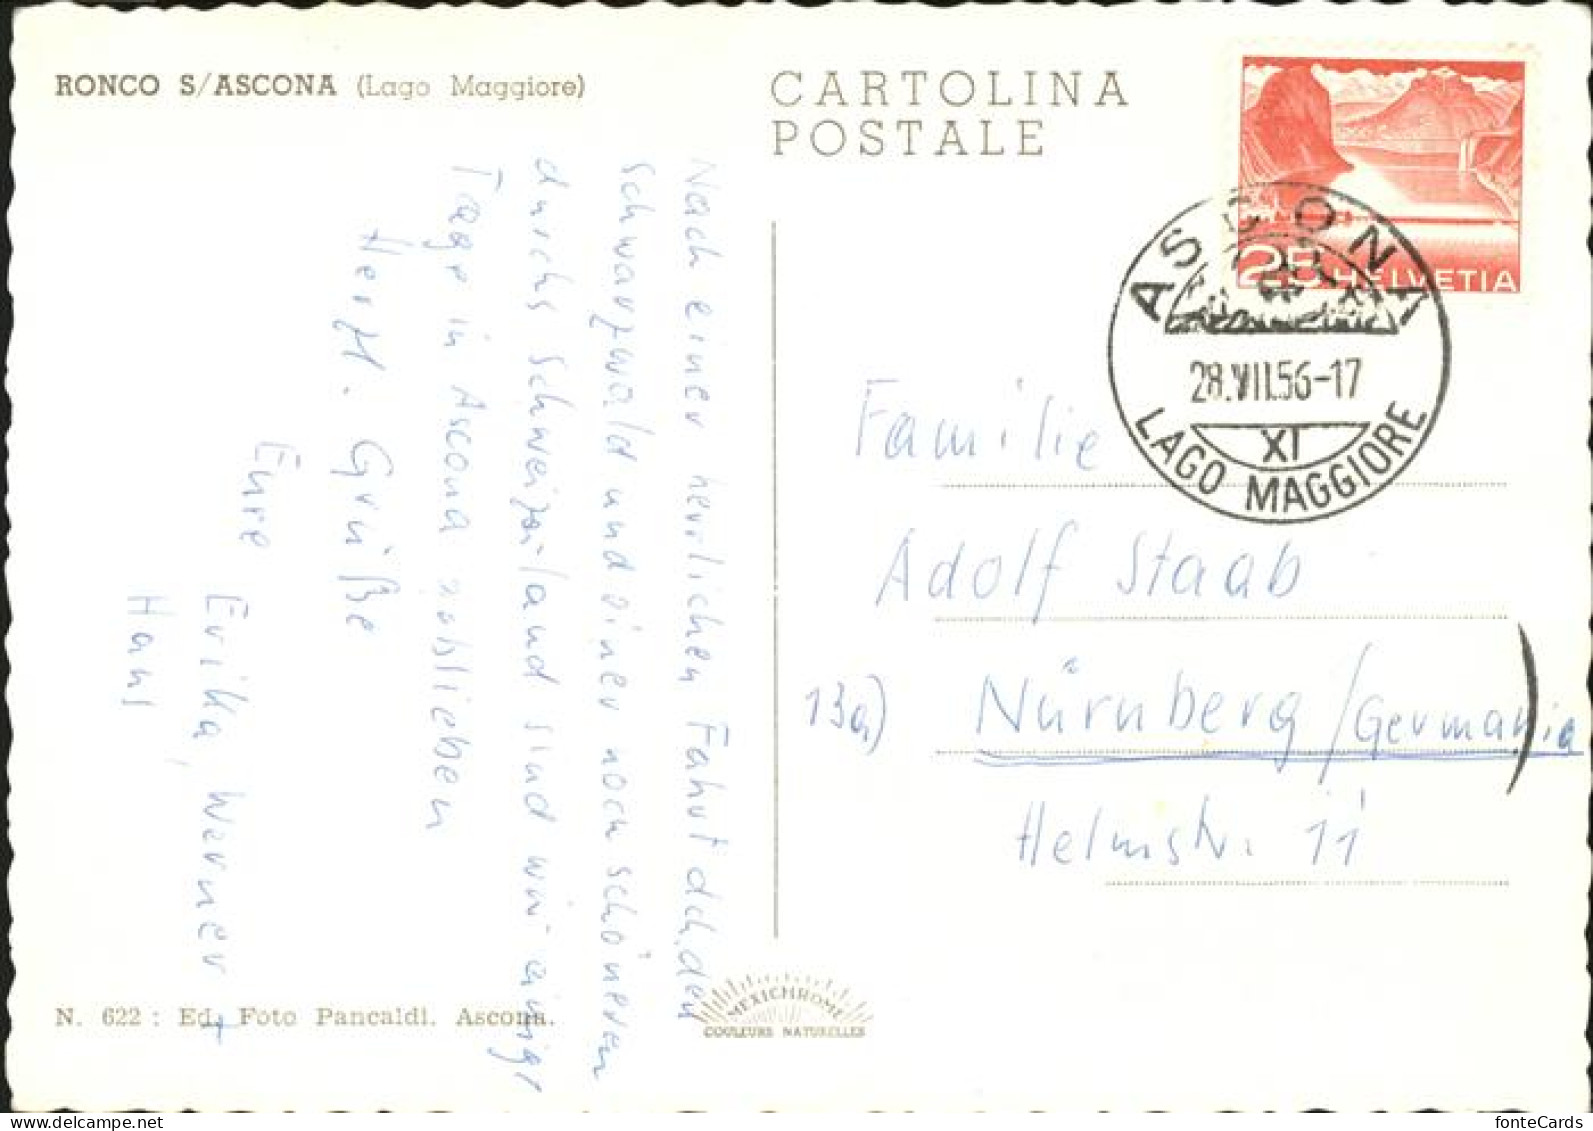 RONCO S/ASCONA (Lago Maggiore)
CARTOLINA
POSTALE
25 HELVETIA
ASCONA
28.VII.56-17
XI
LAGO MAGGIORE
Nach einer herrlichen Fahrt dch. den
Schwarzwald und einer noch schöneren
durchs Schweizerland sind wir einige
Tage in Ascona geblieben
Herzl. Grüße
Eure
Erika, Werner +
Hansl
Familie
Adolf Staab
13a) Nürnberg/Germania
Helmstr. 11
N. 622 : Ed. Foto Pancaldi. Ascona.
MEXICHROME
COULEURS NATURELLES
fonteCards